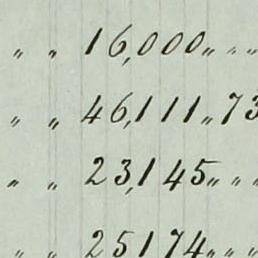 " " 16,000 " " "
" " 46,111 " 73
" " 23,145 " " "
" " 25174 " " "